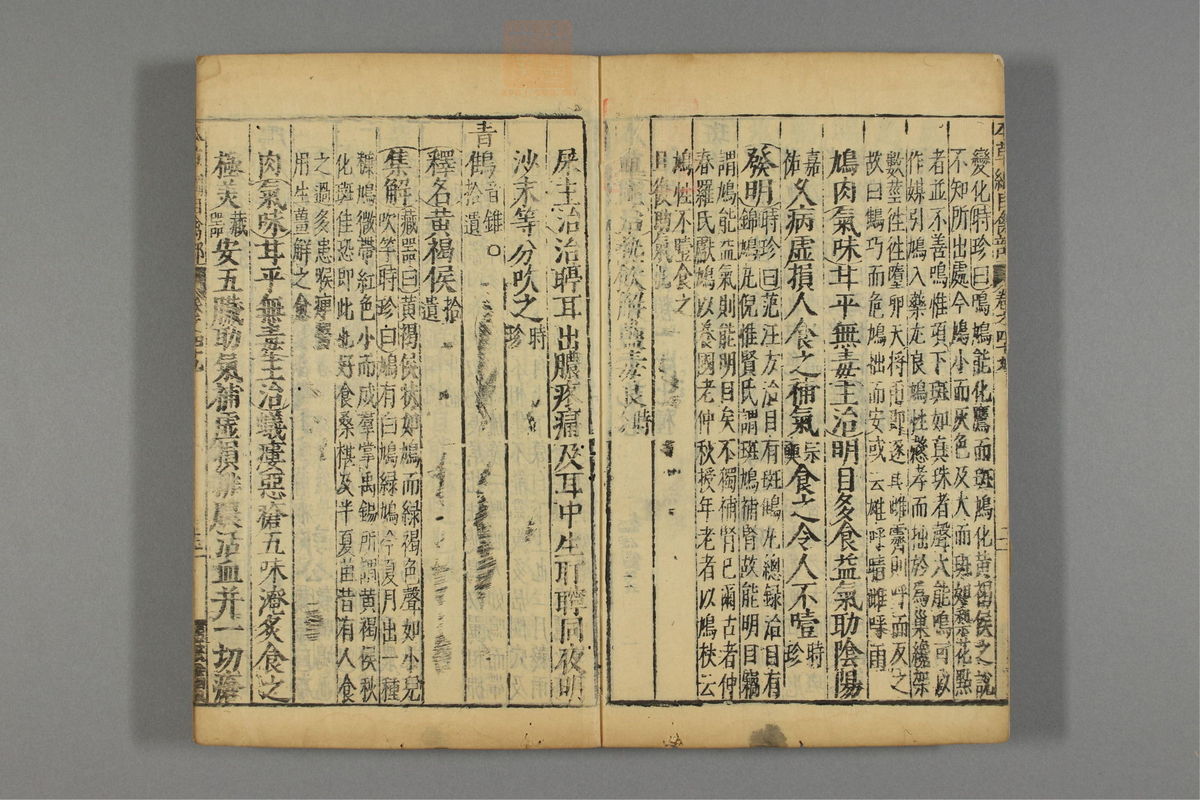 變化時珍曰鳴鳩能化鷹而斑鳩化黃褐侯之說
不知所出處今鳩小而灰色及大而斑如梨花點
者並不善鳴惟項下斑如真珠者聲大能鳴可以
作媒引鳩入藥尤良鳩性慤孝而拙於爲巢纔架
數莖往往墮卵天將雨卽逐其雌霽則呼而反之
故曰鷦巧而危鳩拙而安或云雄呼晴雌呼雨
鳩肉氣味甘平無毒主治明目多食益氣助陰陽
嘉祐久病虛損人食之補氣宗奭食之令人不噎時珍
發明時珍曰范汪方治目有斑鵻丸總錄治目有
錦鳩丸倪惟賢氏謂斑鳩補腎故能明目竊
謂鳩能益氣則能明目矣不獨補腎已爾古者仲
春羅氏獻鳩以養國老仲秋授年老者以鳩杖云
鳩性不噎食之
且復助氣也
血主治熱飲解蠱毒良時
屎主治治聤耳出膿疼痛及耳中生耵聹同夜明
沙末等分吹之時珍
青鶴音錐拾遺
釋名黃褐侯拾遺
集解藏器曰黃褐侯狀如鳩而綠褐色聲如小兒
吹竽時珍曰鳩有白鳩綠鳩今夏月出一種
糠鳩微帶紅色小而成羣掌禹錫所謂黃褐侯秋
化斑隹恐卽此也好食桑椹及半夏苗昔有人食
之過多患喉痹醫
用生薑解之愈
肉氣味甘平無毒主治蟻瘻惡瘡五味淹炙食之
極美藏器安五臟助氣補虛損排膿活血并一切瘡